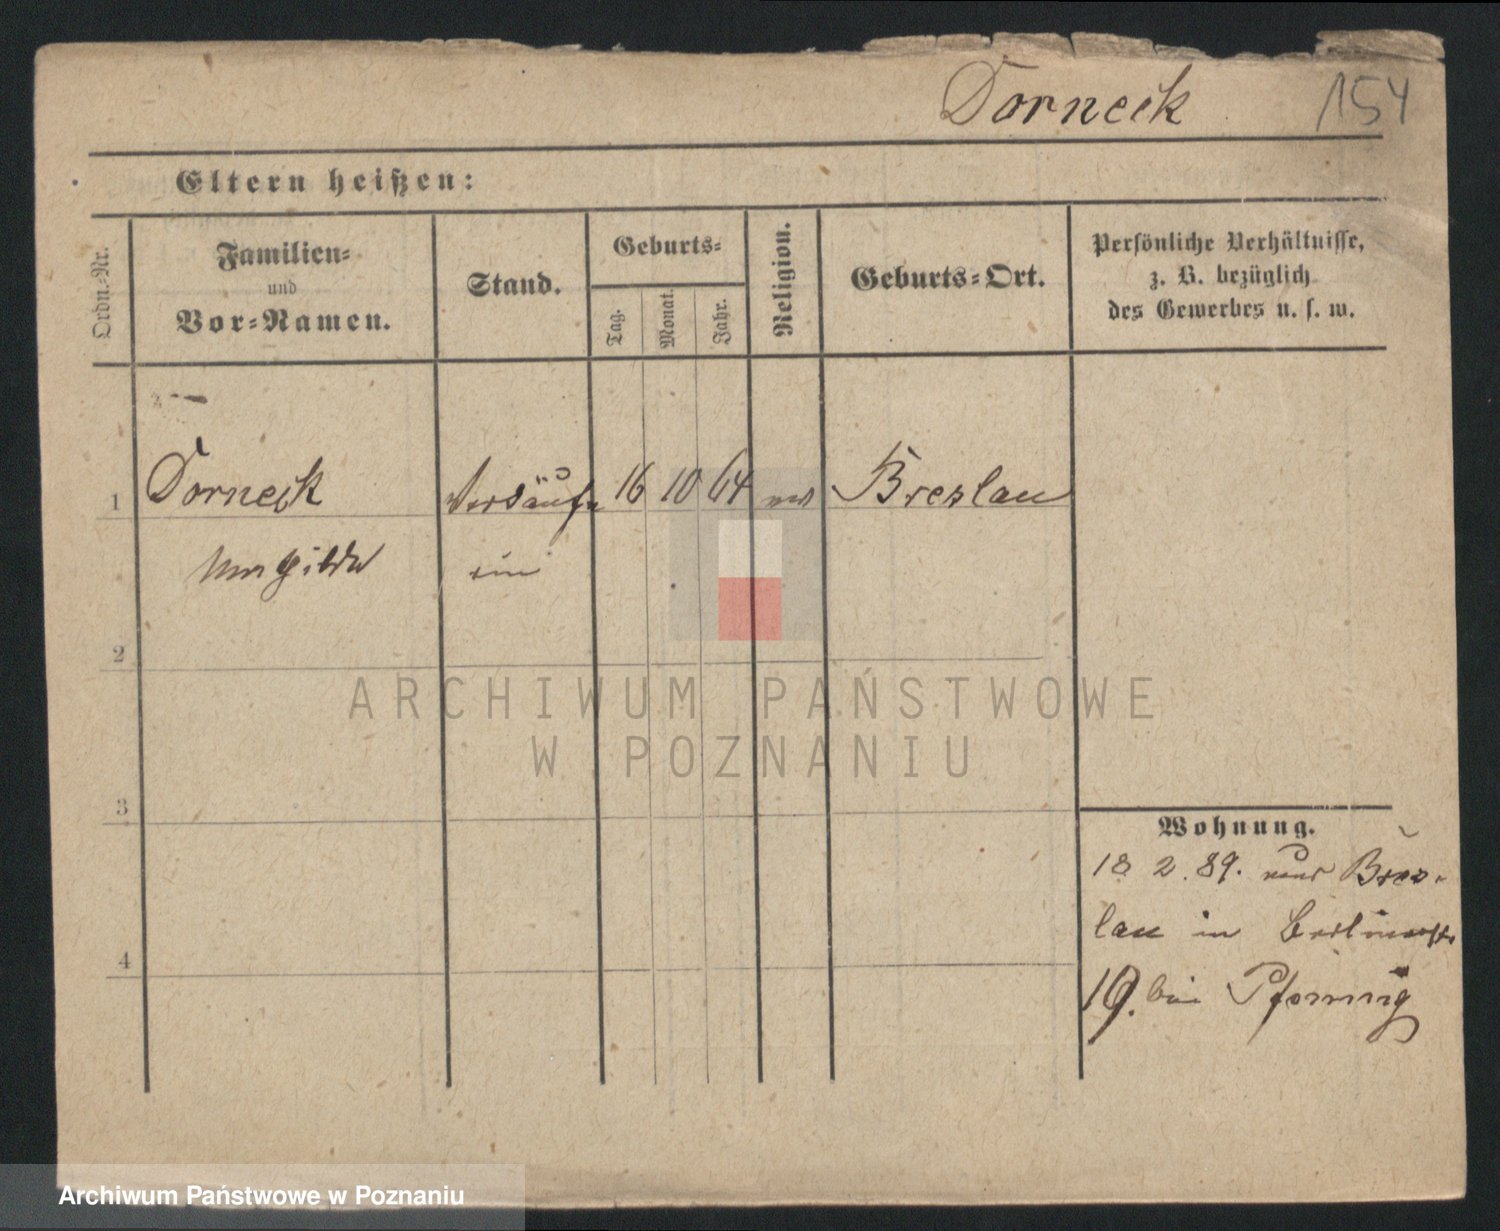 Dorneck 154
Eltern heißen:
Ordn.-Nr.
Familien-
und
Vor-Namen.
Stand.
Geburts-
Tag.
Monat.
Jahr.
Religion.
Geburts-Ort.
Persönliche Verhältnisse,
z. B. bezüglich
des Gewerbes u. s. w.
1 Dorneck Verkäufe 16 10 64 Breslau
rin
2
3
4
Wohnung.
18 2. 89. aus Bres-
lau in Berlinerstr
19. bei Pfennig
ARCHIWUM PAŃSTWOWE
W POZNANIU
Archiwum Państwowe w Poznaniu